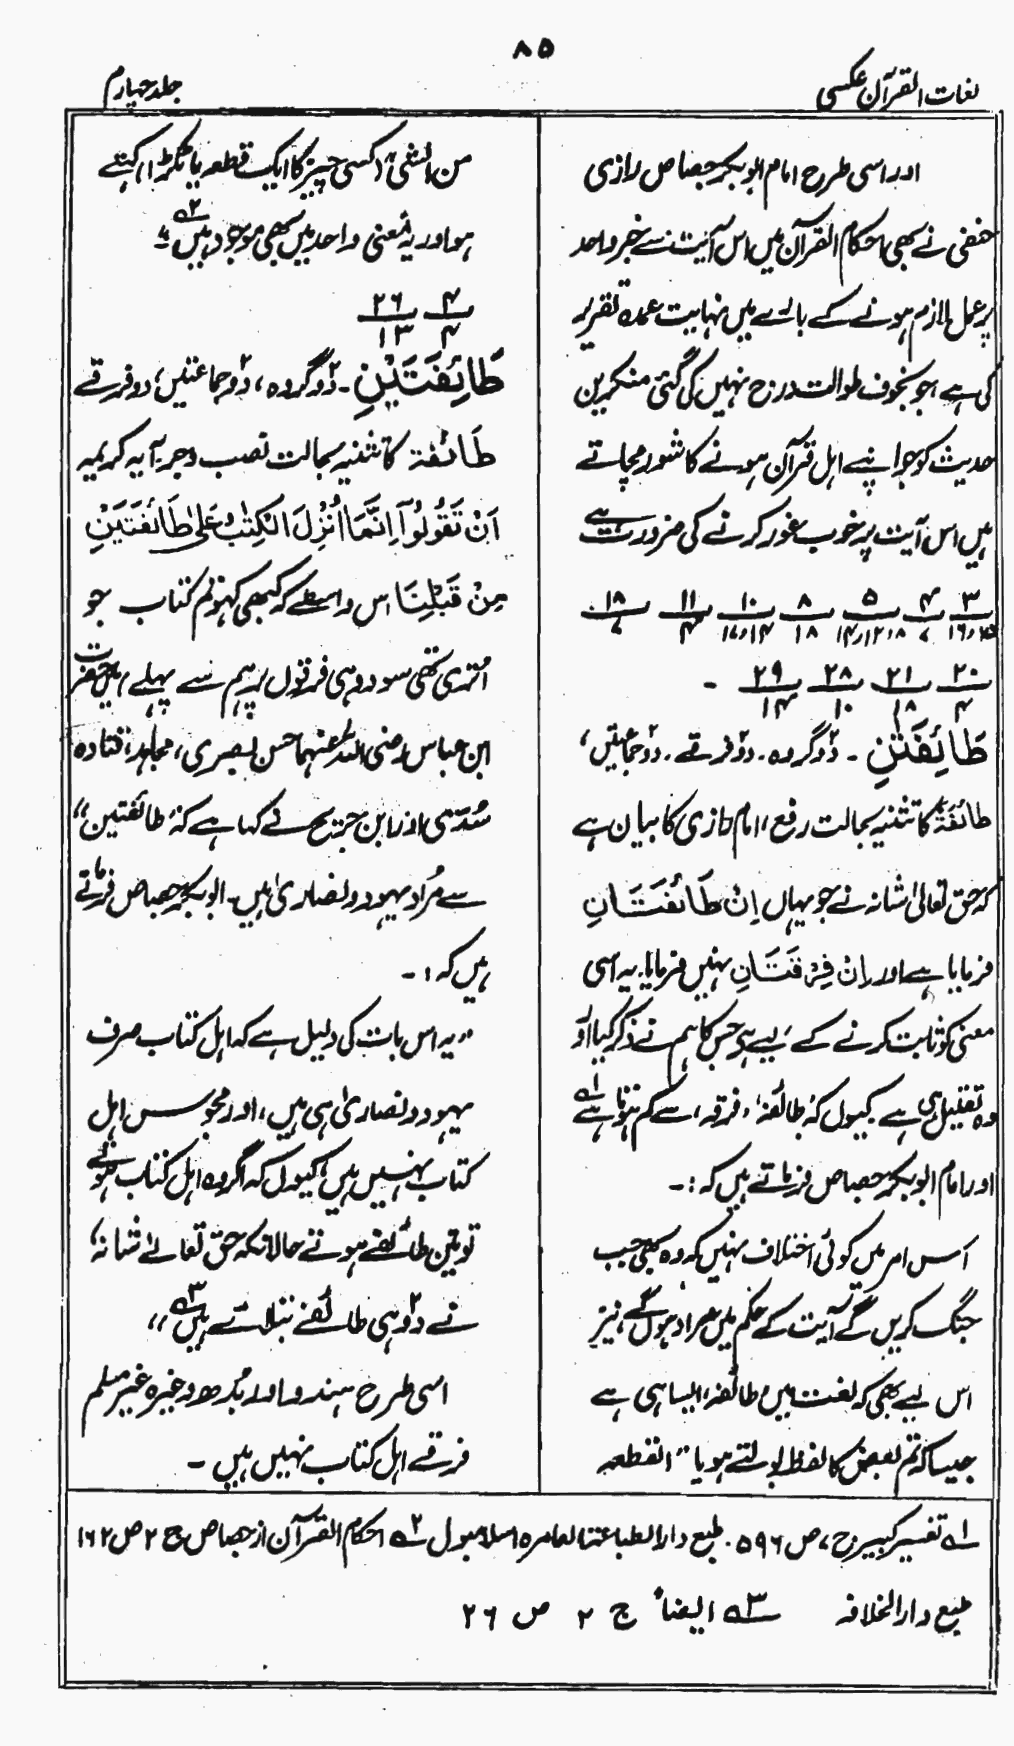 ۸۵
لغات القرآن عکسی
جلد چہارم
اور اسی طرح امام ابوبکر جصاص رازی
حنفی نے بھی احکام القرآن میں اس آیت سے خبر واحد
پر عمل لازم ہونے کے بارے میں نہایت عمدہ تقریر
کی ہے، جو بخوف طوالت درج نہیں کی گئی منکرین
حدیث کو جو اپنے اہل قرآن ہونے کا شور مچاتے
ہیں اس آیت پر خوب غور کرنے کی ضرورت ہے
۳ ۴ ۵ ۸ ۱۰ ۱۱ ۱۸
۱۶، ۷ ۸، ۱۲، ۱۴ ۱۸ ۱۴، ۱۷ ۴ ۷
۲۰ ۲۱ ۲۸ ۲۹ ۔
۴ ۱۸ ۱۰ ۱۴
طَائِفَتٰنِ ۔ دو گروہ، دو فرقے، دو جماعتیں،
طائفۃٌ کا تثنیہ بحالت رفع، امام رازی کا بیان ہے
کہ حق تعالیٰ شانہ نے جو یہاں اِنْ طَائفَتَانِ
فرمایا ہے اور اِنْ فِرْقَتَانِ نہیں فرمایا۔ یہ اسی
معنی کو ثابت کرنے کے لیے ہے جس کا ہم نے ذکر کیا اور
وہ تقلیل ہی ہے کیوں کہ طائفہ، فرقہ، سے کم ہوتا ہے ۱؎
اور امام ابوبکر جصاص فرماتے ہیں کہ :۔
اس امر میں کوئی اختلاف نہیں کہ وہ بھی جب
جنگ کریں گے آیت کے حکم میں مراد ہوں گے، نیز
اس لیے بھی کہ لغت میں طائفہ، ایسا ہی ہے
جیسا کہ تم بعض کا لفظ بولتے ہو یا "القطعہ
من الشیٔ (کسی چیز کا ایک قطعہ یا ٹکڑا) کہتے
ہو اور یہ معنی واحد میں بھی موجود ہیں ۲؎
۴ ۲۶
۴ ۱۳
طَائِفَتَیْنِ ۔ دو گروہ، دو جماعتیں، دو فرقے
طَائفۃ کا تثنیہ بحالت نصب وجر، آیہ کریمہ
اَنْ تَقُوْلُوْٓا اِنَّمَآ اُنْزِلَ الْکِتٰبُ عَلٰی طَآئِفَتَیْنِ
مِنْ قَبْلِنَا اس واسطے کہ کبھی کہو تم کتاب جو
اتری تھی سو دو ہی فرقوں پر ہم سے پہلے) میں حضرت
ابن عباس رضی اللہ عنہما حسن بصری، مجاہد، قتادہ
سُدّی اور ابن جریج نے کہا ہے کہ "طائفتین"
سے مُراد یہود و نصاریٰ ہیں۔ ابوبکر جصاص فرماتے
ہیں کہ :۔
"یہ اس بات کی دلیل ہے کہ اہل کتاب صرف
یہود و نصاریٰ ہی ہیں، اور مجوس اہل
کتاب نہیں ہیں، کیوں کہ اگر وہ اہل کتاب ہوتے
تو تین طائفے ہوتے حالانکہ حق تعالےٰ شانہ،
نے دو ہی طائفے بتلائے ہیں ۳؎"
اسی طرح ہندو اور بُدھ وغیرہ غیر مسلم
فرقے اہل کتاب نہیں ہیں ۔
۱؎ تفسیر کبیر ج ۷ ص ۵۹۶۔ طبع دارالطباعۃ العامرہ اسلامبول ۲؎ احکام القرآن از جصاص ج ۲ ص ۱۶۲
طبع دارالخلافہ ۳؎ ایضاً ج ۲ ص ۲۶